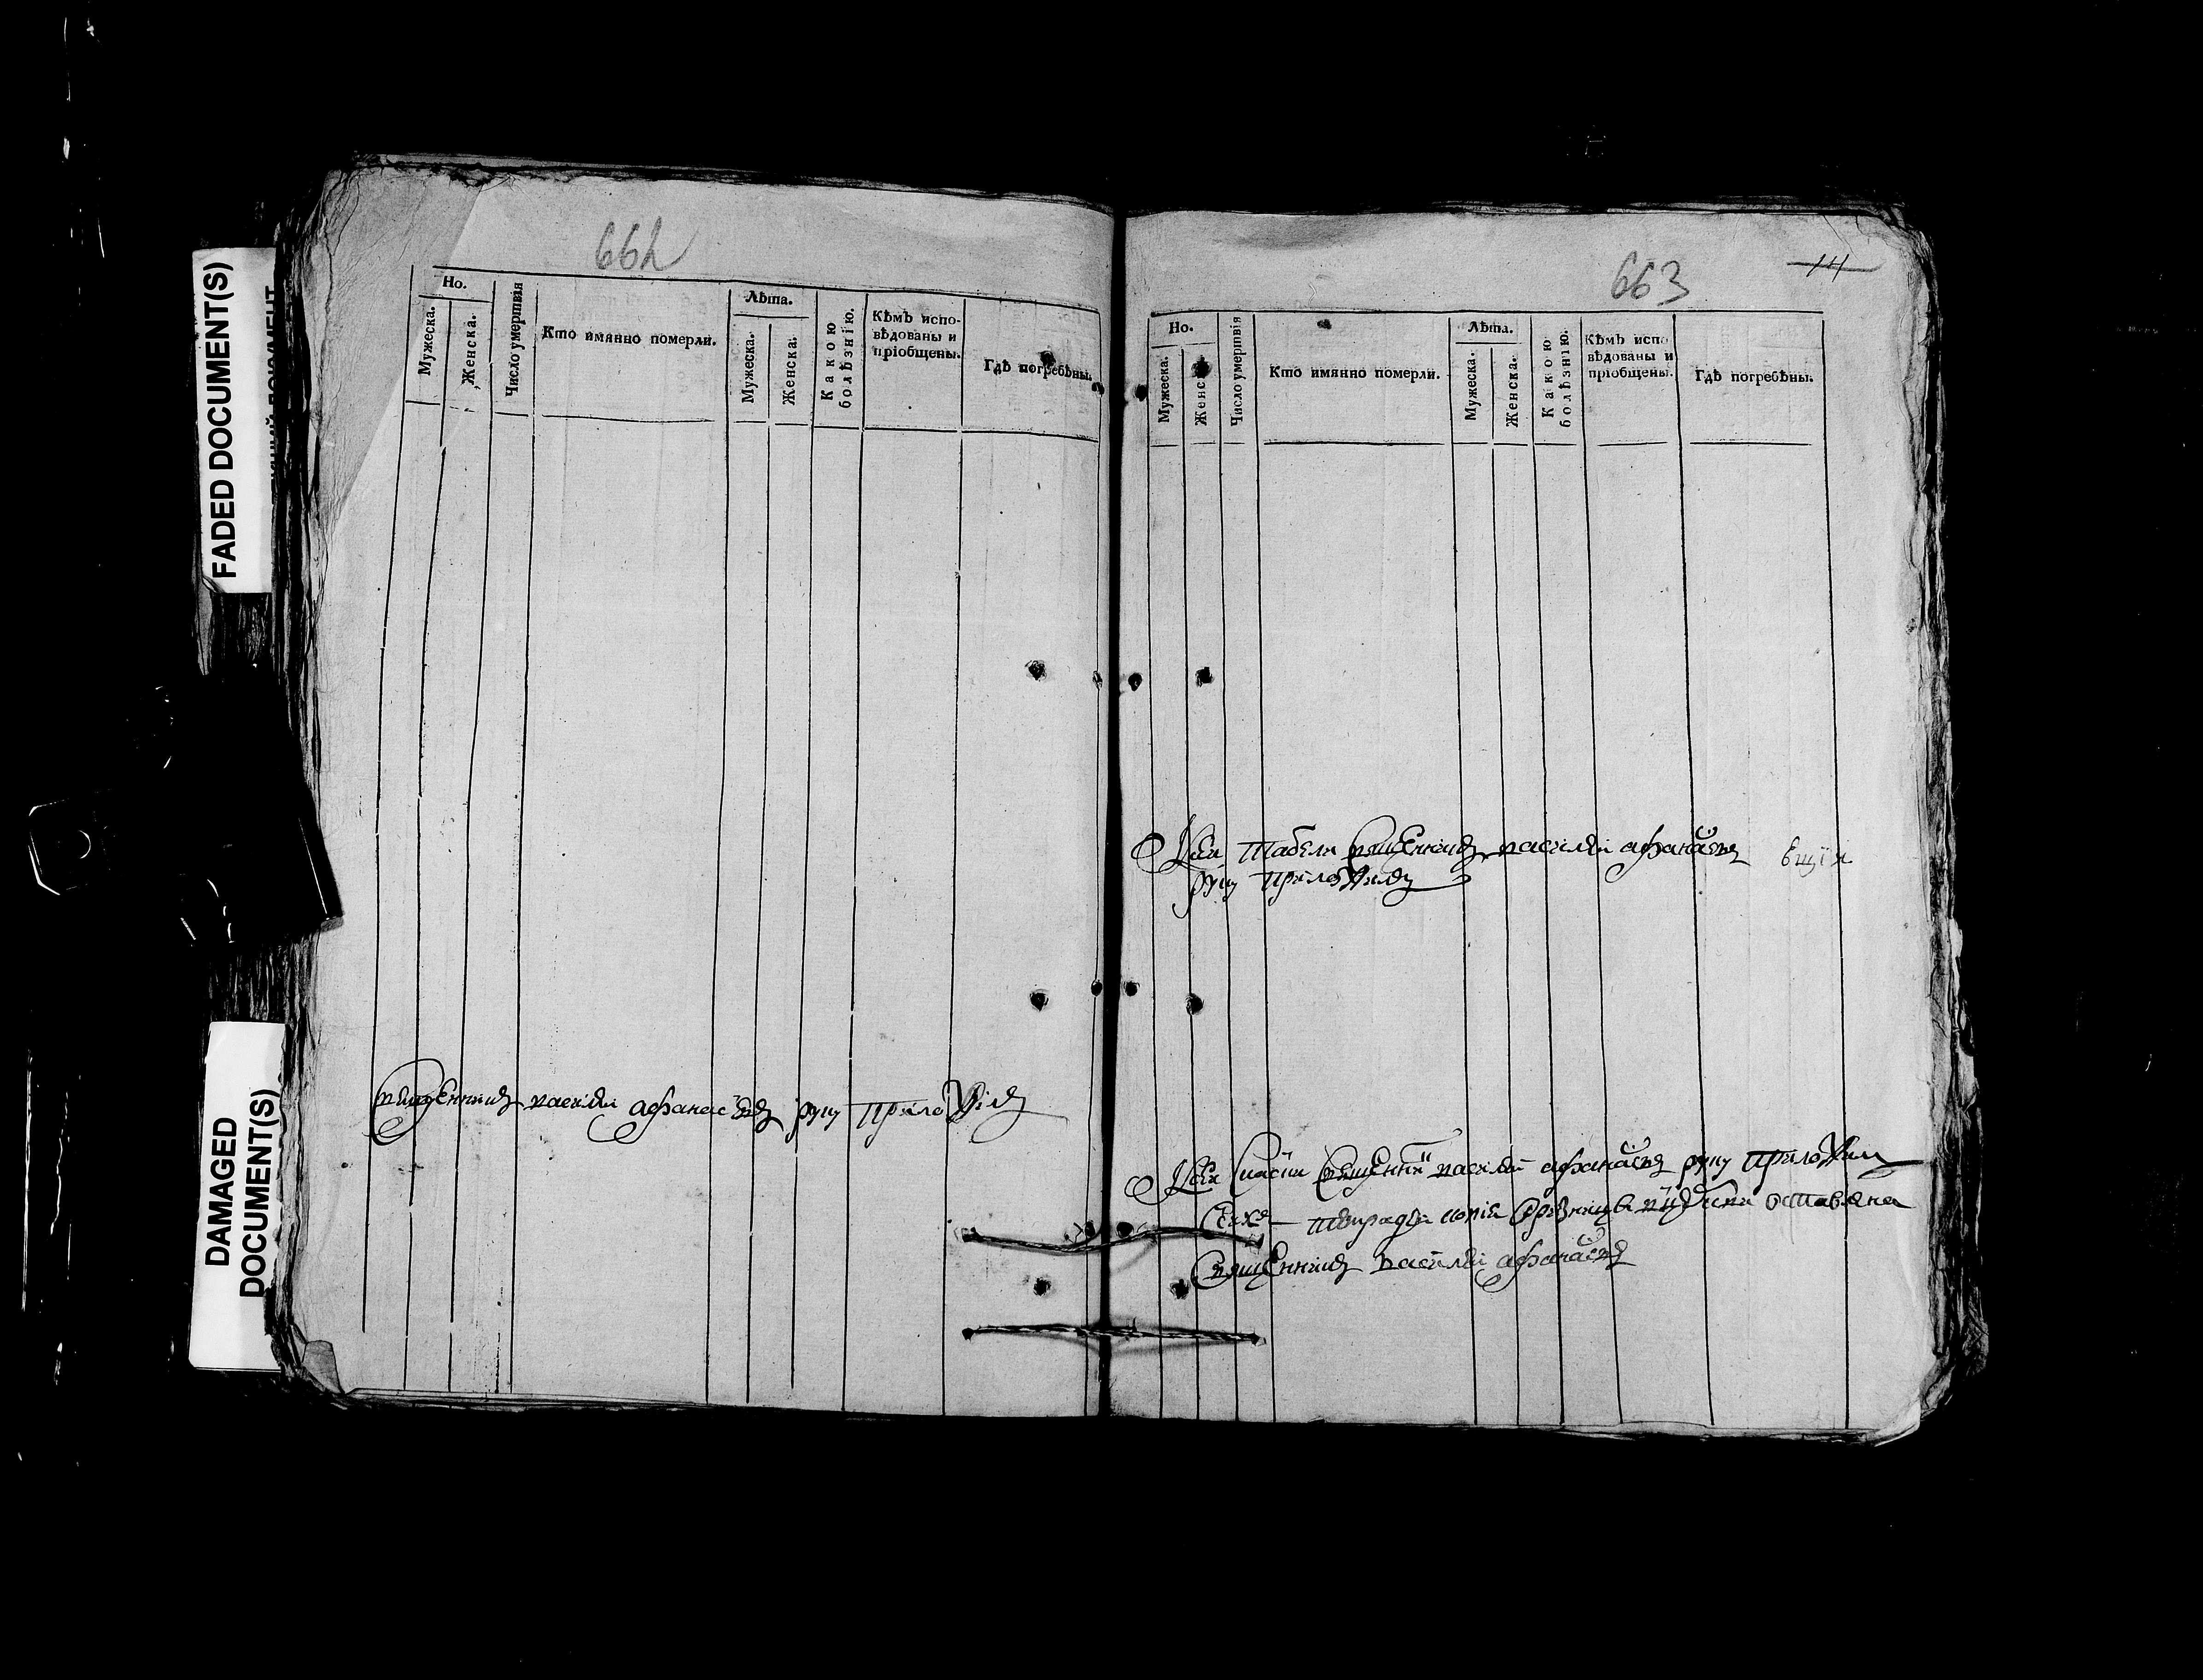 FADED DOCUMENT(S)
DAMAGED
DOCUMENT(S)
662
Но.
Мужеска.
Женска.
Число умертвія
Кто имянно померли.
Лѣта.
Мужеска.
Женска.
Какою
болѣзнію.
Кѣмъ испо-
вѣдованы и
пріобщены.
Гдѣ погребѣны.
священникъ василей афанасьевъ руку приложилъ
663
14
Но.
Мужеска.
Женск
Число умертвія
Кто имянно померли.
Лѣта.
Мужеска.
Женска.
Какою
болѣзнію.
Кѣмъ испо
вѣдованы и
пріобщены.
Гдѣ погребѣны.
табели священникъ василей афанасьевъ
руку приложилъ
василей афанасьевъ руку приложилъ
копія оставлена
священникъ василей афанасьевъ